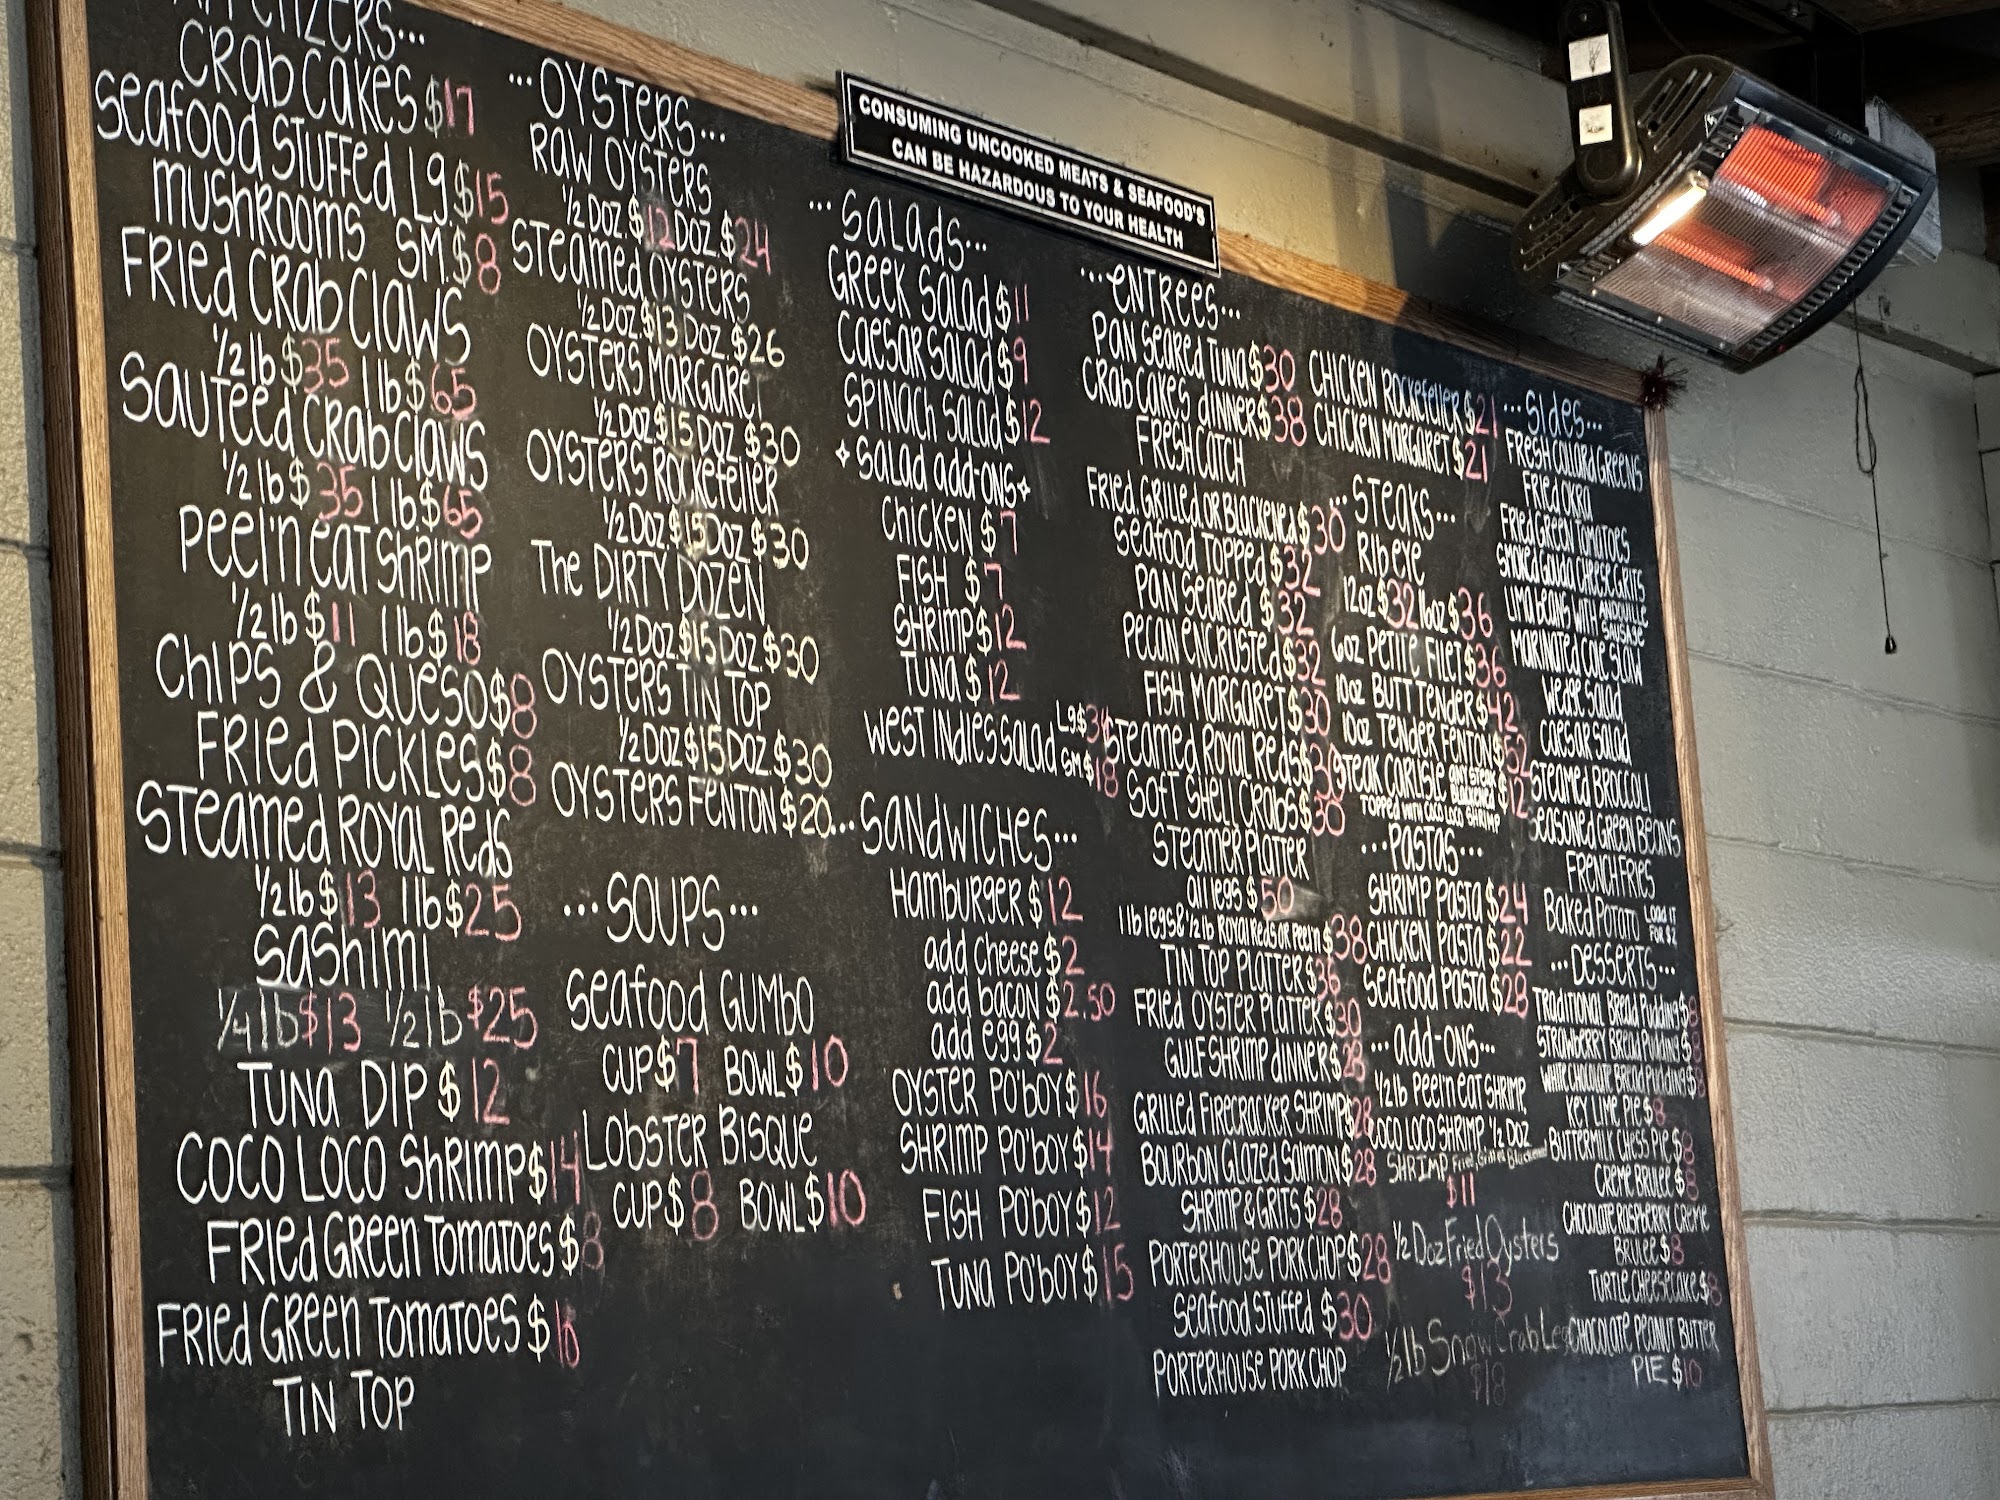 APPETIZERS...
CRAB CAKES $17
SEAFOOD STUFFED LG $15
MUSHROOMS SM. $8
FRIED CRAB CLAWS
1/2 lb $35 1 lb $65
SAUTEED CRAB CLAWS
1/2 lb $35 1 lb. $65
PEEL'N EAT SHRIMP
1/2 lb $11 1 lb $18
CHIPS & QUESO $8
FRIED PICKLES $8
STEAMED ROYAL REDS
1/2 lb $13 1 lb $25
SASHIMI
1/4 lb $13 1/2 lb $25
TUNA DIP $12
COCO LOCO SHRIMP $14
FRIED GREEN TOMATOES $8
FRIED GREEN TOMATOES $18
TIN TOP
...OYSTERS...
RAW OYSTERS
1/2 DOZ. $12 DOZ. $24
STEAMED OYSTERS
1/2 DOZ. $13 DOZ. $26
OYSTERS MARGARET
1/2 DOZ. $15 DOZ. $30
OYSTERS ROCKEFELLER
1/2 DOZ. $15 DOZ. $30
The DIRTY DOZEN
1/2 DOZ. $15 DOZ. $30
OYSTERS TIN TOP
1/2 DOZ $15 DOZ. $30
OYSTERS FENTON $20
...SOUPS...
SEAFOOD GUMBO
CUP $7 BOWL $10
LOBSTER BISQUE
CUP $8 BOWL $10
CONSUMING UNCOOKED MEATS & SEAFOOD'S
CAN BE HAZARDOUS TO YOUR HEALTH
...SALADS...
GREEK SALAD $11
CAESAR SALAD $9
SPINACH SALAD $12
SALAD ADD-ONS
CHICKEN $7
FISH $7
SHRIMP $12
TUNA $12
WEST INDIES SALAD LG $34
SM $18
...SANDWICHES...
HAMBURGER $12
add cheese $2
add bacon $2.50
add egg $2
OYSTER PO'BOY $16
SHRIMP PO'BOY $14
FISH PO'BOY $12
TUNA PO'BOY $15
...ENTREES...
PAN SEARED TUNA $30
CRAB CAKES DINNER $38
FRESH CATCH
FRIED, GRILLED, OR BLACKENED $30
SEAFOOD TOPPED $32
PAN SEARED $32
PECAN ENCRUSTED $32
FISH MARGARET $30
STEAMED ROYAL REDS $30
SOFT SHELL CRABS $30
STEAMER PLATTER
all legs $50
1 lb legs & 1/2 lb ROYAL REDS OR Peel'n $38
TIN TOP PLATTER $36
FRIED OYSTER PLATTER $30
GULF SHRIMP DINNER $28
GRILLED FIRECRACKER SHRIMP $28
BOURBON GLAZED SALMON $28
SHRIMP & GRITS $28
PORTERHOUSE PORK CHOP $28
SEAFOOD STUFFED $30
PORTERHOUSE PORK CHOP
CHICKEN ROCKEFELLER $21
CHICKEN MARGARET $21
...STEAKS...
RIBEYE
12oz $32 16oz $36
6oz PETITE FILET $36
10oz BUTT TENDER $42
10oz TENDER FENTON $52
STEAK CARLISLE ANY STEAK BLACKENED $12
TOPPED WITH COCO LOCO SHRIMP
...PASTAS...
SHRIMP PASTA $24
CHICKEN PASTA $22
SEAFOOD PASTA $28
...add-ONS...
1/2 lb Peel'n EAT SHRIMP,
COCO LOCO SHRIMP 1/2 DOZ
SHRIMP Fried, Grilled, Blackened
$11
1/2 Doz Fried Oysters
$13
1/2 lb Snow Crab Leg
$18
...SIDES...
FRESH COLLARD GREENS
FRIED OKRA
FRIED GREEN TOMATOES
SMOKED GOUDA CHEESE GRITS
LIMA BEANS WITH ANDOUILLE SAUSAGE
MARINATED COLE SLAW
WEDGE SALAD
CAESAR SALAD
STEAMED BROCCOLI
SEASONED GREEN BEANS
FRENCH FRIES
BAKED POTATO LOAD IT FOR $2
...DESSERTS...
TRADITIONAL BREAD PUDDING $8
STRAWBERRY BREAD PUDDING $8
WHITE CHOCOLATE BREAD PUDDING $8
KEY LIME PIE $8
BUTTERMILK CHESS PIE $8
CREME BRULEE $8
CHOCOLATE RASPBERRY CREME
BRULEE $8
TURTLE CHEESECAKE $8
CHOCOLATE PEANUT BUTTER
PIE $10